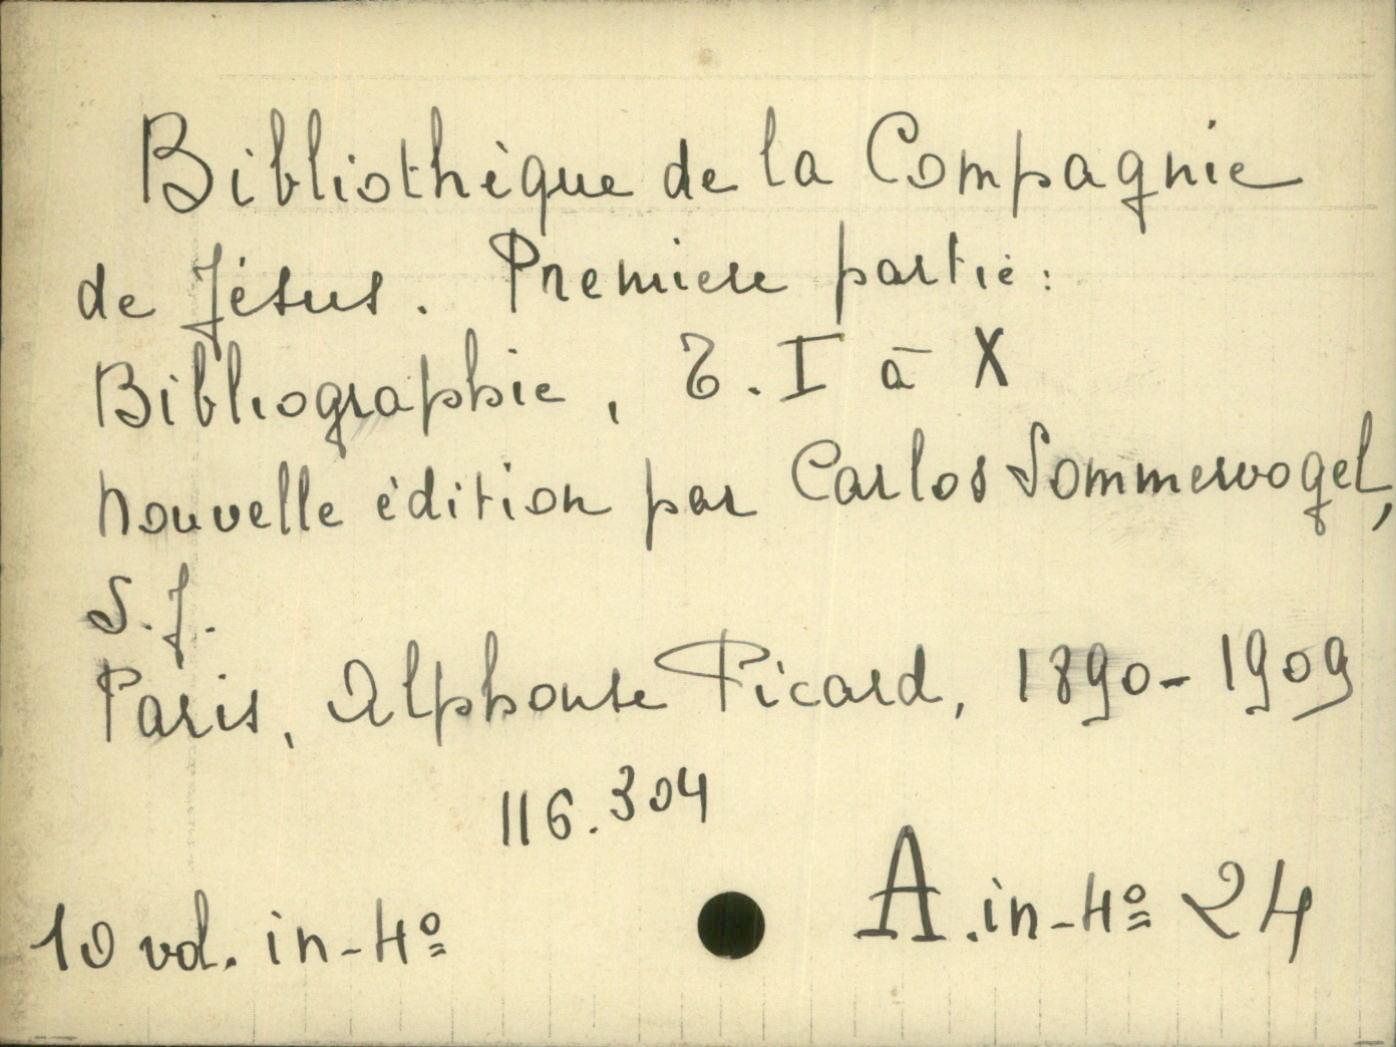 Bibliothèque de la Compagnie
de Jésus. Premiere partie :
Bibliographie, T. I à X
nouvelle édition par Carlos Sommervogel,
S. J.
Paris, Alphonse Picard, 1890-1909
116.304
10 vol. in-4º A.in-4º 24